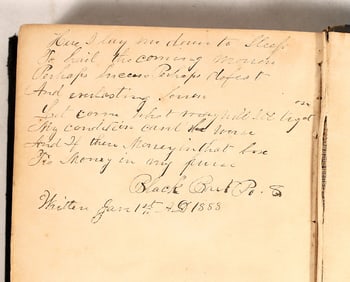 Here I lay me down to Sleep
To hail the coming morrow
Perhaps Success Perhaps defeat
And everlasting Sorrow
Let come what may hill
My condition cant be worse
And If there Money in that box
Tis Money in my purse
Black Bart Po. 8
Written Jan 1st AD 1888